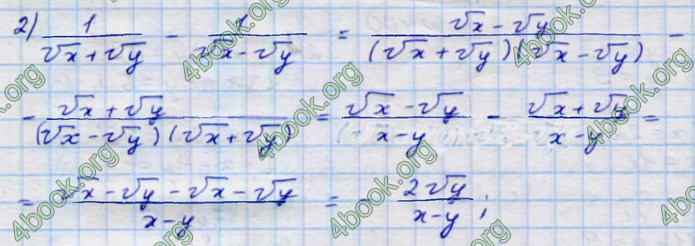 2) 1/(√x + √y) - 1/(√x - √y) = (√x - √y)/((√x + √y)(√x - √y)) -
- (√x + √y)/((√x - √y)(√x + √y)) = (√x - √y)/(x - y) - (√x + √y)/(x - y) =
= (√x - √y - √x - √y)/(x - y) = - 2√y/(x - y);
4book.org
4book.org
4book.org
4book.org
4book.org
4book.org